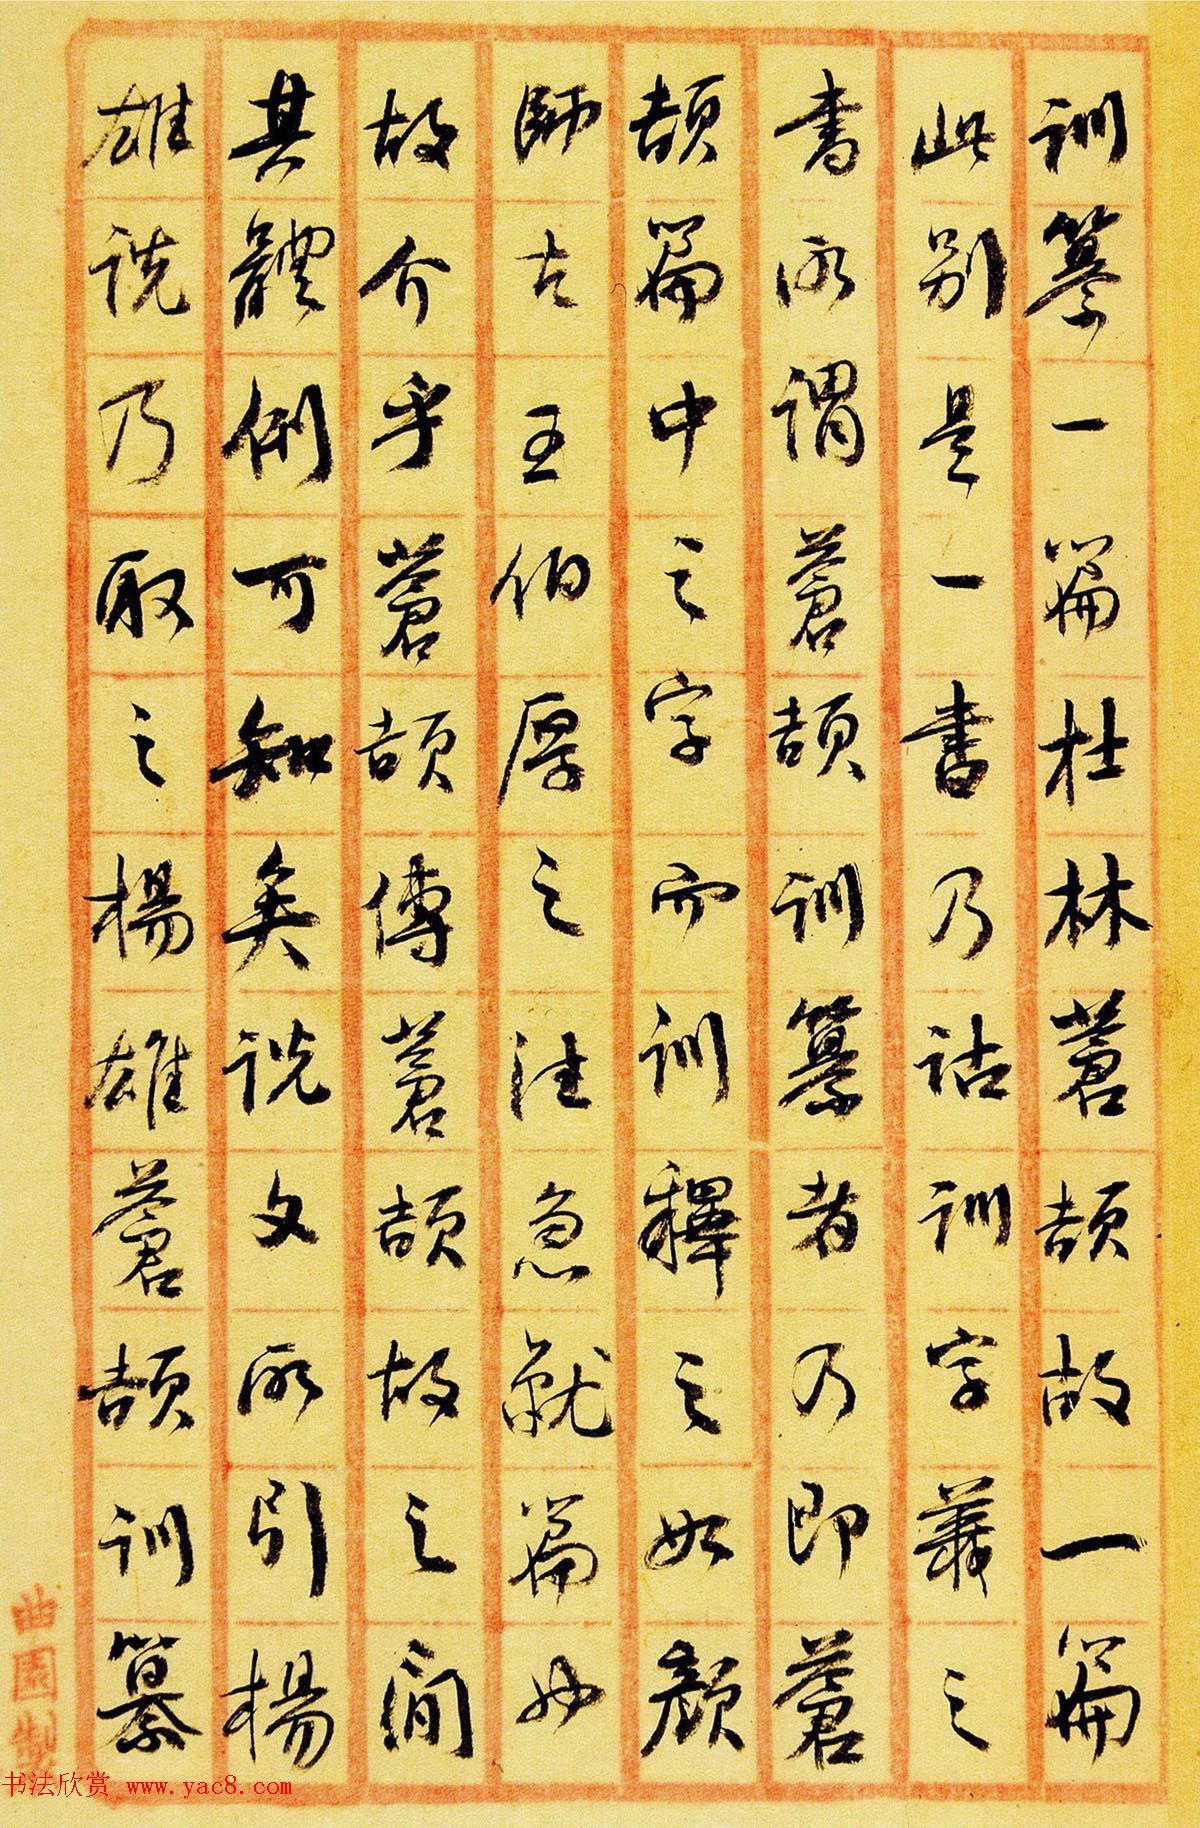 訓纂一篇杜林蒼頡故一篇
此别是一書乃詁訓字義之
書所謂蒼頡訓纂者乃即蒼
頡篇中之字而訓釋之如顏
師古王伯厚之注急就篇也
故介乎蒼頡傳蒼頡故之間
其體例可知矣説文所引楊
雄説乃取之楊雄蒼頡訓纂
曲園製
书法欣赏 www.yac8.com